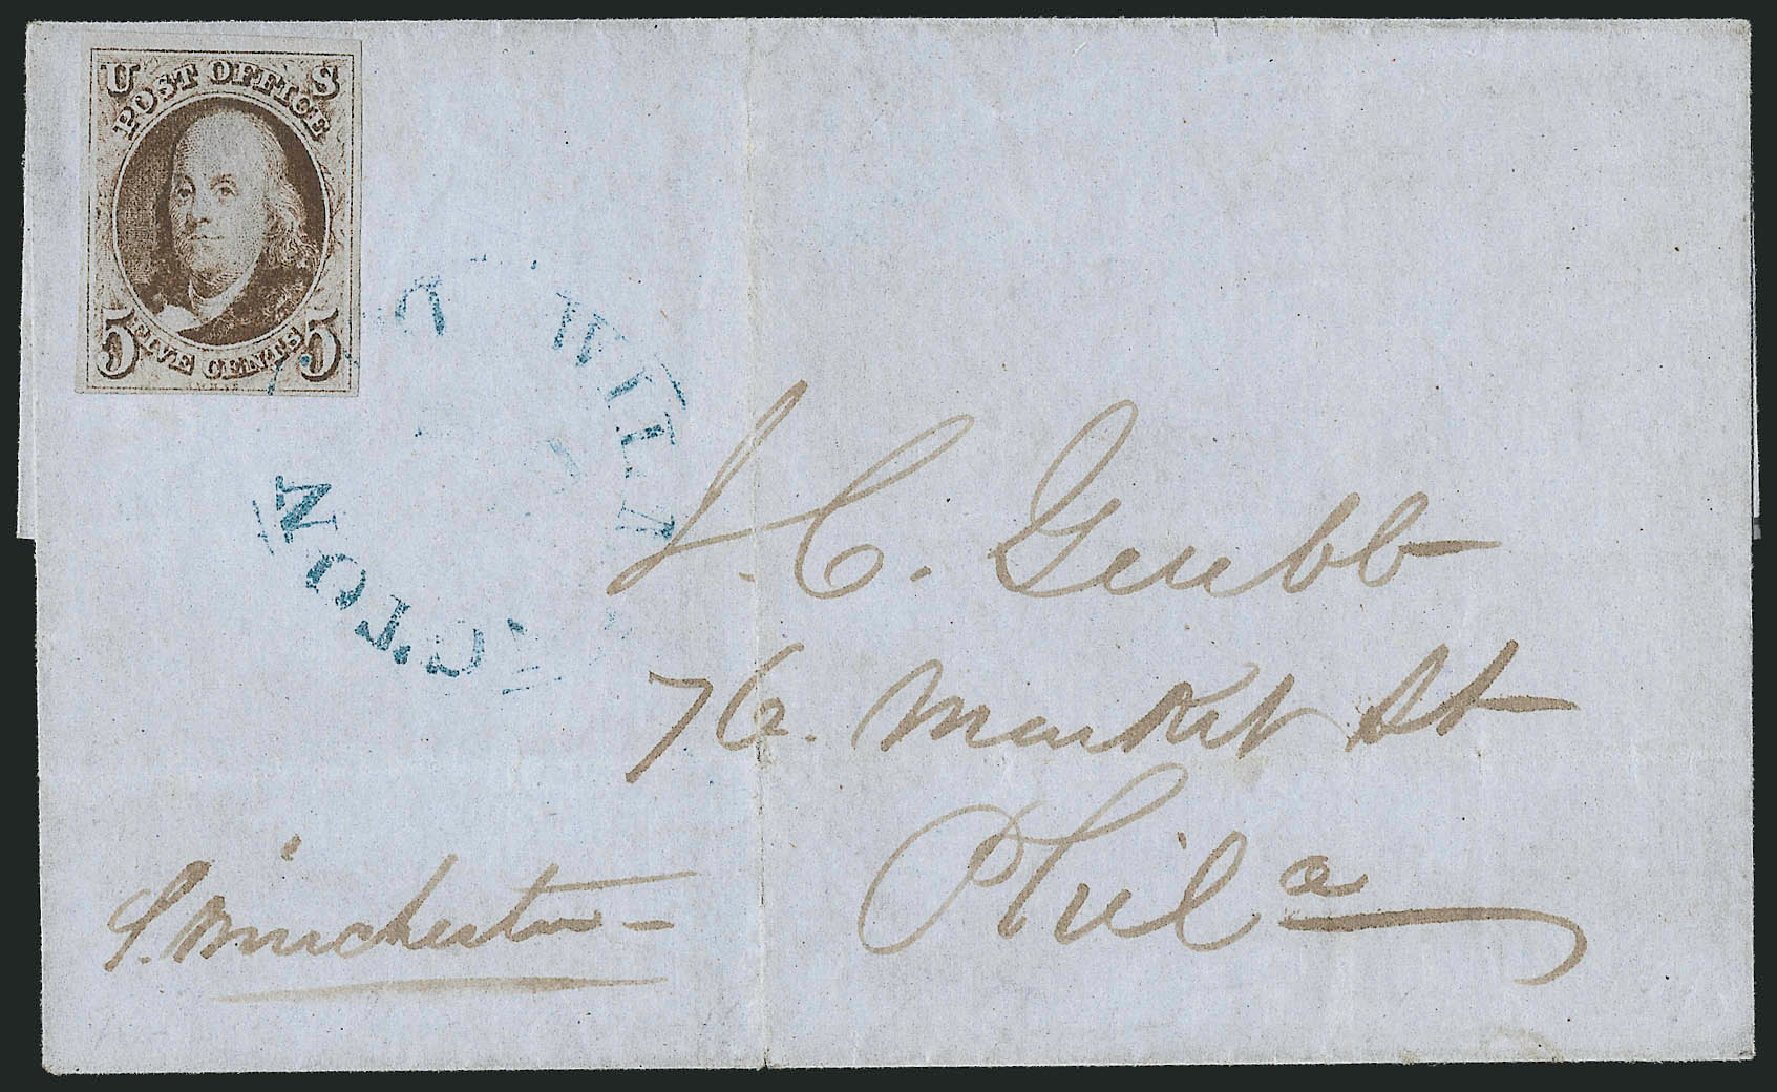 U S
POST OFFICE
5 FIVE CENTS 5
WILM GTON D
J. C. Grubb
76. Market St
Phila
Winchester